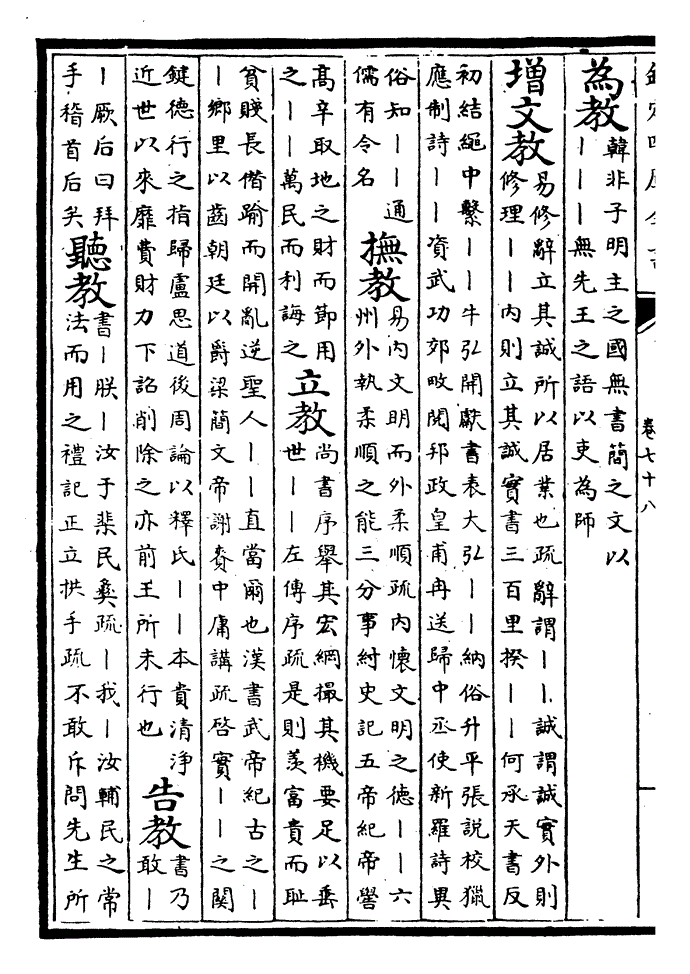 欽定四庫全書
卷七十八
為教
韓非子明主之國無書簡之文以
丨丨丨無先王之語以吏為師
增文教
易修辭立其誠所以居業也疏辭謂丨丨誠謂誠實外則
修理丨丨內則立其誠實書三百里揆丨丨何承天書反
初結繩中繫丨丨牛弘開獻書表大弘丨丨納俗升平張說校獵
應制詩丨丨資武功郊畋閱邦政皇甫冉送歸中丞使新羅詩異
俗知丨丨通
儒有令名
撫教
易內文明而外柔順疏內懷文明之德丨丨六
州外執柔順之能三分事紂史記五帝紀帝嚳
高辛取地之財而節用
之丨丨萬民而利誨之
立教
尚書序舉其宏綱撮其機要足以垂
世丨丨左傳序疏是則羨富貴而恥
貧賤長僭踰而開亂逆聖人丨丨直當爾也漢書武帝紀古之丨
丨鄉里以齒朝廷以爵梁簡文帝謝賚中庸講疏啓實丨丨之關
鍵德行之指歸盧思道後周論以釋氏丨丨本貴清浄
近世以來靡費財力下詔削除之亦前王所未行也
告教
書乃
敢丨
丨厥后曰拜
手稽首后矣
聽教
書丨朕丨汝于棐民彝疏丨我丨汝輔民之常
法而用之禮記正立拱手疏不敢斥問先生所